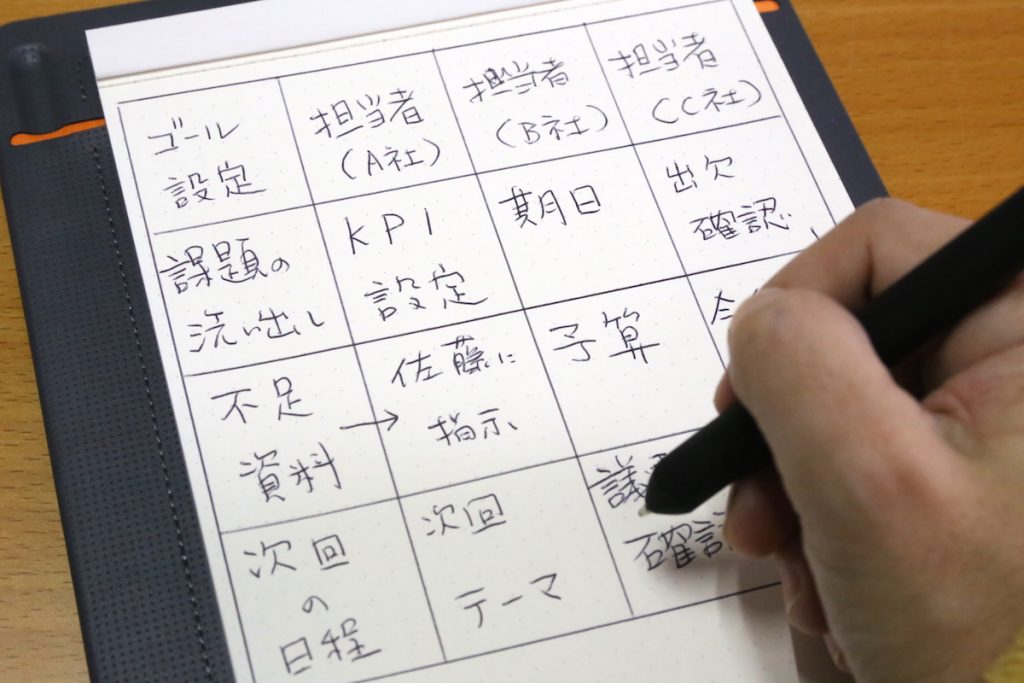 ゴール
設定
担当者
(A社)
担当者
(B社)
担当者
(CC社)
課題の
洗い出し
KPI
設定
期日
出欠
確認
不足
資料
→
佐藤に
指示
予算
次回
の
日程
次回
テーマ
議
確認